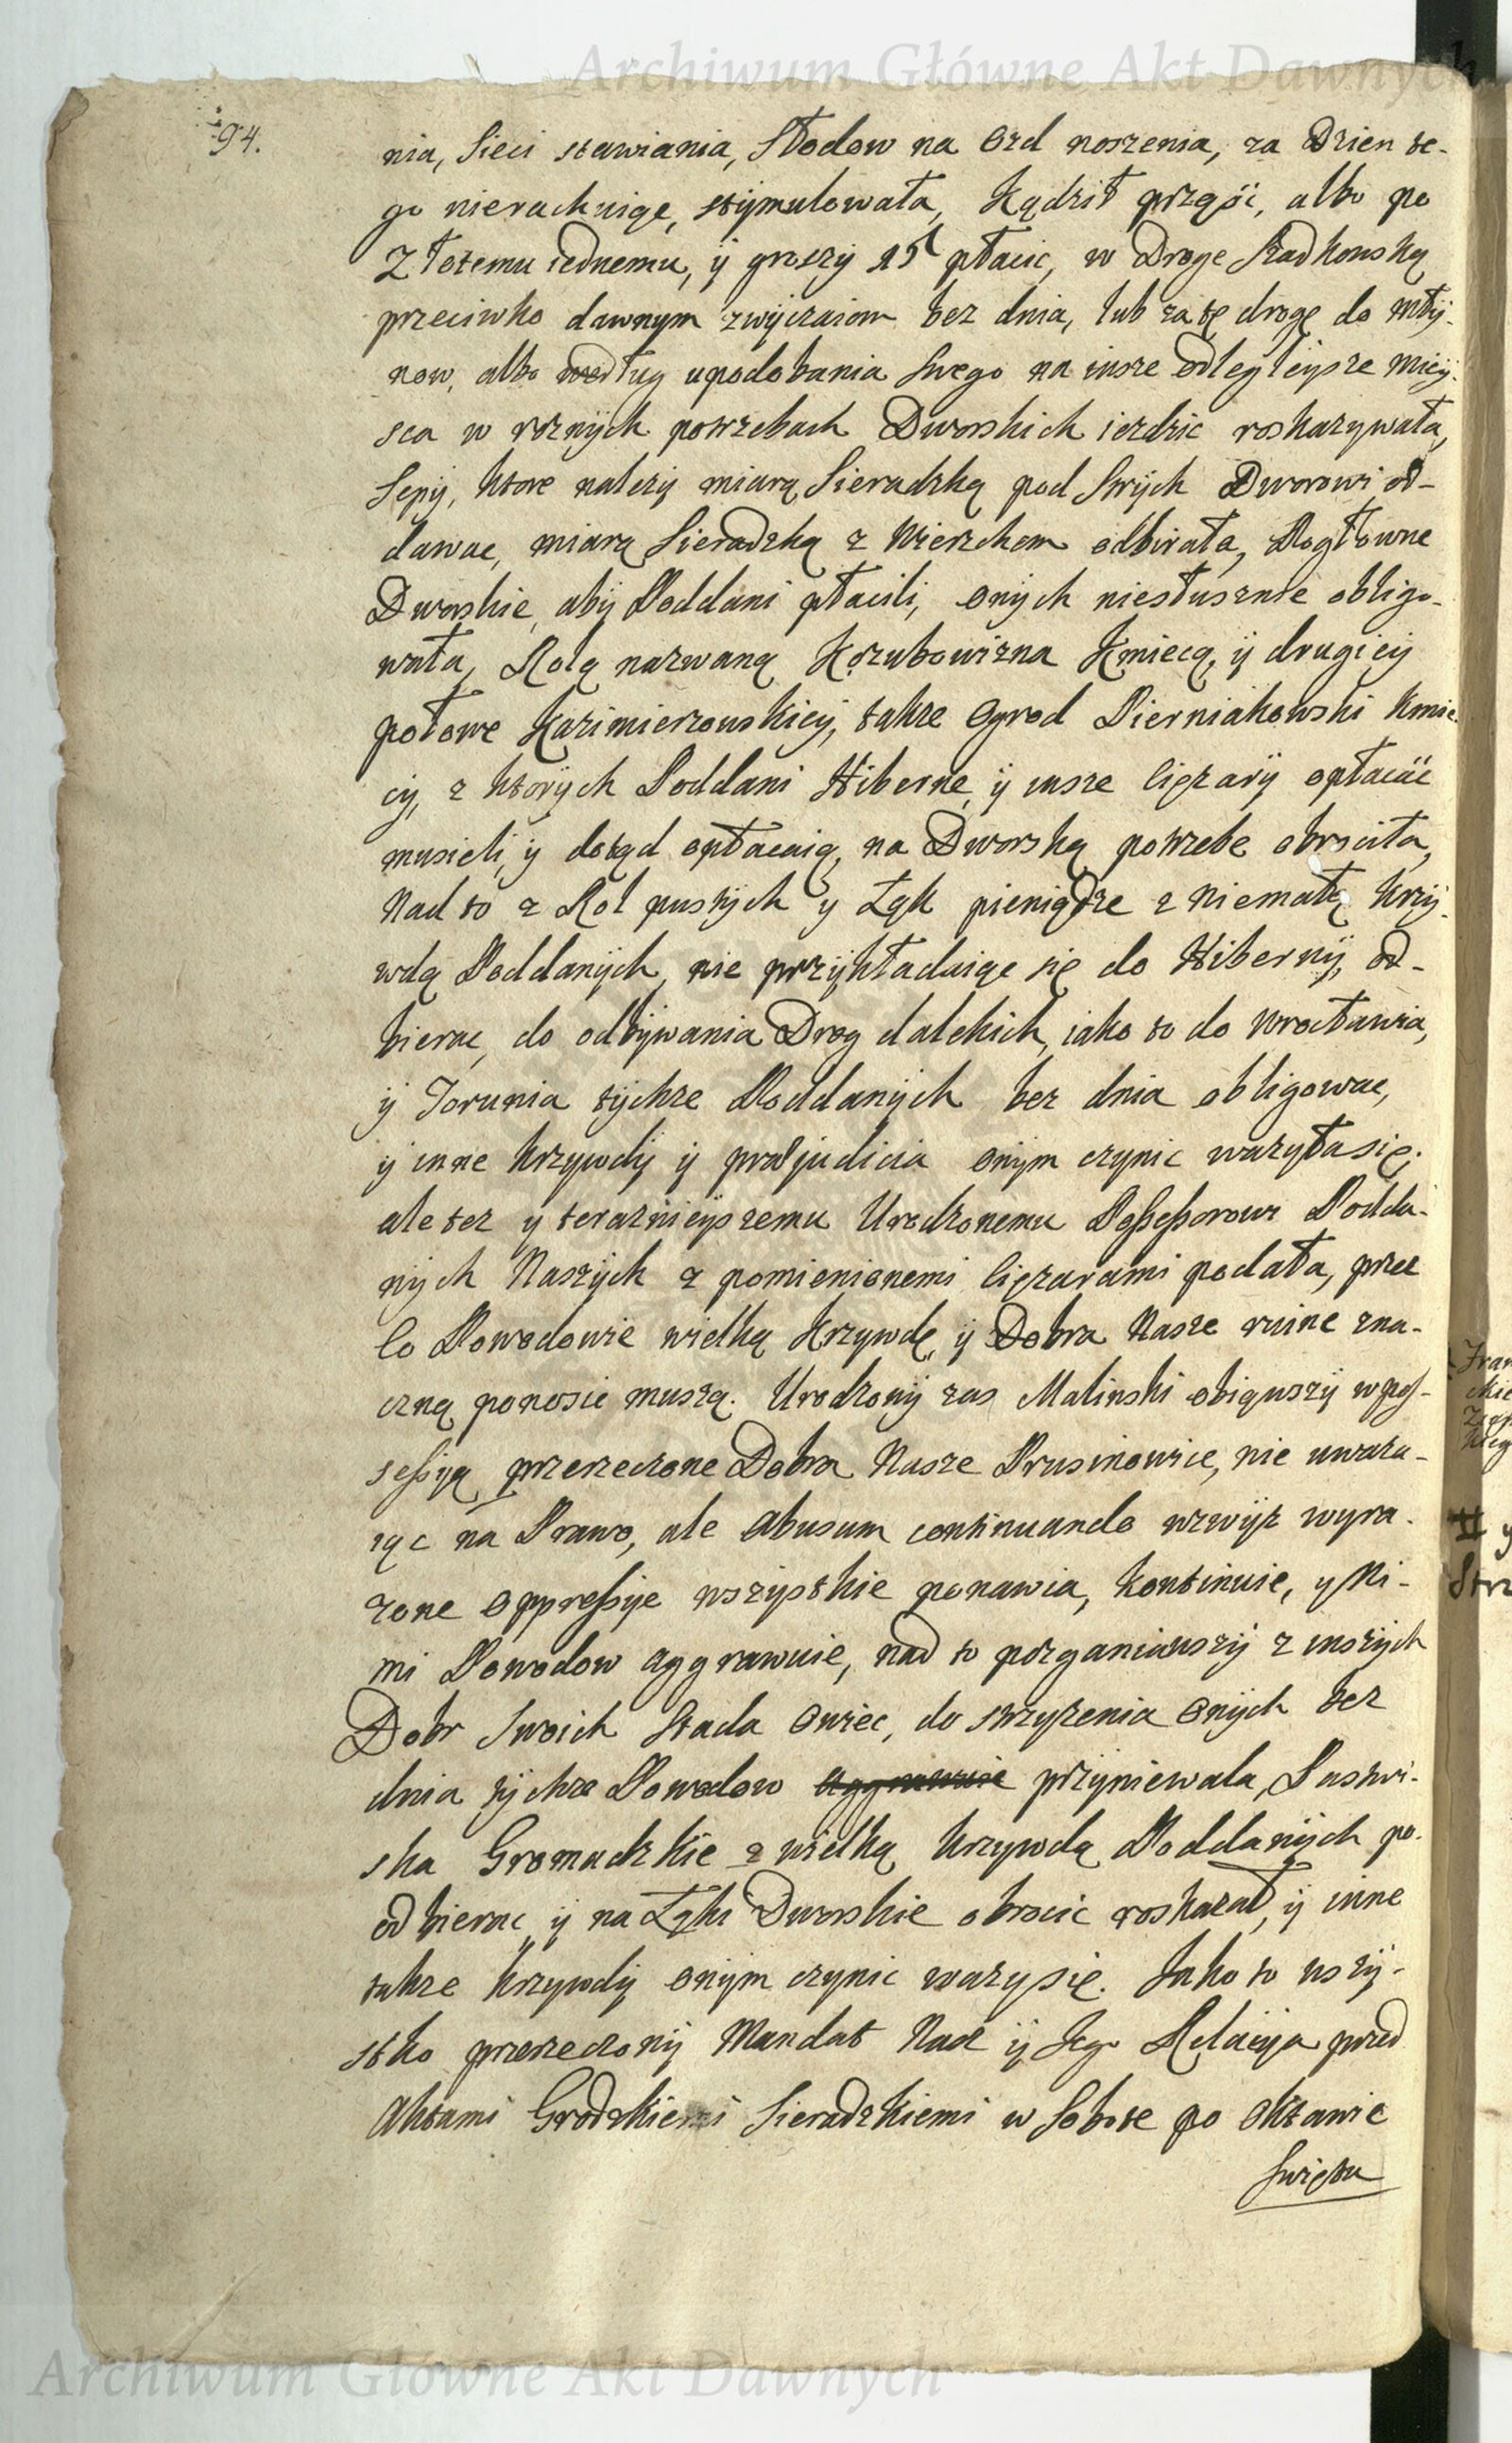 Archiwum Główne Akt Dawnych
94.
nia, Sieci stawiania, Słodow na Ozd noszenia, za Dzien te-
go nierachuiąc, stymulowała, Kądził prząść, albo po
Złotemu iednemu, ÿ groszÿ 15 płacic, w Droge Szadkowską
przeciwko dawnym zwÿczaiom bez dnia, lub za tę drogę do Młÿ-
now, albo według upodobania Swego na insze odlegleÿsze Mieÿ-
sca w roznÿch potrzebach Dworskich iezdzic roskazywała,
Sepÿ, ktore nalezÿ miarą Sieradzką pod Strÿch Dworowi od-
dawac, miarą Sieradzką z Wierzchem odbirała, Pogłowne
Dworskie, abÿ Poddani płacili, onÿch niesłusznie obligo-
wała, Rolą nazwaną Kozubowizna Kmiecą, ÿ drugieÿ
połowe Kazimierzowskieÿ, takze Ogrod Pierniakowski Kmie-
cÿ, z ktorÿch Poddani Hiberne, ÿ insze Cięzarÿ opłacac
musieli, ÿ dotąd opłacaią, na Dworską potrzebe obrocita,
Nad to z Rol pustÿch y Łąk pieniądze z niemałą krzÿ-
wdą Poddanÿch, nie przÿkładaiąc się do Hibernÿ, od-
bierac, do odbÿwania Drog dalekich, iako to do Wrocławia,
ÿ Torunia tÿchze Poddanÿch bez dnia obligowac,
ÿ inne krzywdÿ ÿ præjudicia onÿm czynic wazyła się;
ale tez y teraznieÿszemu Urodzonemu Possessorowi Podda-
nÿch Naszÿch z pomienionemi Cięzarami podała, przez
Co Powodowie wielką krzywdę, ÿ Dobra Nasze ruine zna-
czną ponosic muszą. Urodzonÿ zas Malinski obiąwszÿ w pos-
sessyą przerzeczone Dobra Nasze Prusinowice, nie uwaza-
iąc na Prawo, ale Abusum continuando wzwÿz wyra-
zone oppressÿe wszÿstkie ponawia, kontinuie, y Ni-
mi Powodow aggrawuie, nad to pozganiawszÿ z inszÿch
Dobr Swoich Stada Owiec, do strzyzenia onÿch bez
dnia tÿchze Powodow aggrawuie przÿniewala, Pastwi-
ska Gromadzkie z wielką krzywdą Poddanÿch po-
odbierac, ÿ na Łąki Dworskie obrocic roskazał, ÿ inne
takze krzywdÿ onÿm czynic wazy się. Jako to wszÿ-
stko przerzeczonÿ Mandat Nasz ÿ Jego Relacÿa przed
Aktami Grodzkiemi Sieradzkiemi w Sobote po Oktawie
Swięta
Archiwum Główne Akt Dawnych